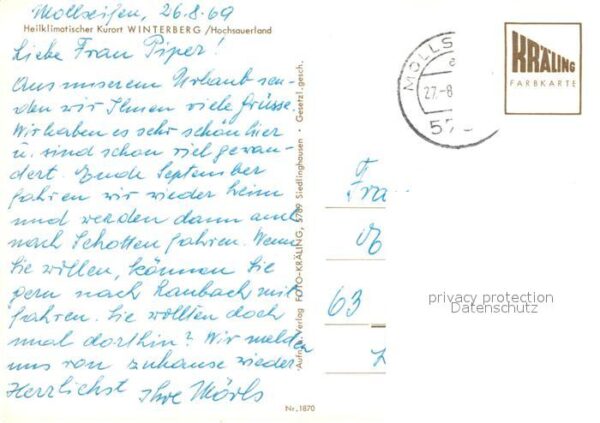 Mollseifen, 26.8.69
Heilklimatischer Kurort WINTERBERG /Hochsauerland
Liebe Frau Piper!
Aus unserem Urlaub sen-
den wir Ihnen viele Grüsse.
Wir haben es sehr schön hier
u. sind schon viel gewan-
dert. Ende September
fahren wir wieder heim
und werden dann auch
nach Schotten fahren. Wenn
Sie wollen, können Sie
gern nach Laubach mit
fahren. Sie wollten doch
mal dorthin? Wir melden
uns von zuhause wieder.
Herzlichst Ihre Mörls
Nr. 1870
Aufn. u. Verlag FOTO-KRÄLING, 5789 Siedlinghausen · Gesetzl. gesch.
MOLLS
27.-8
57
KRÄLING
FARBKARTE
F
Fra
63
privacy protection
Datenschutz